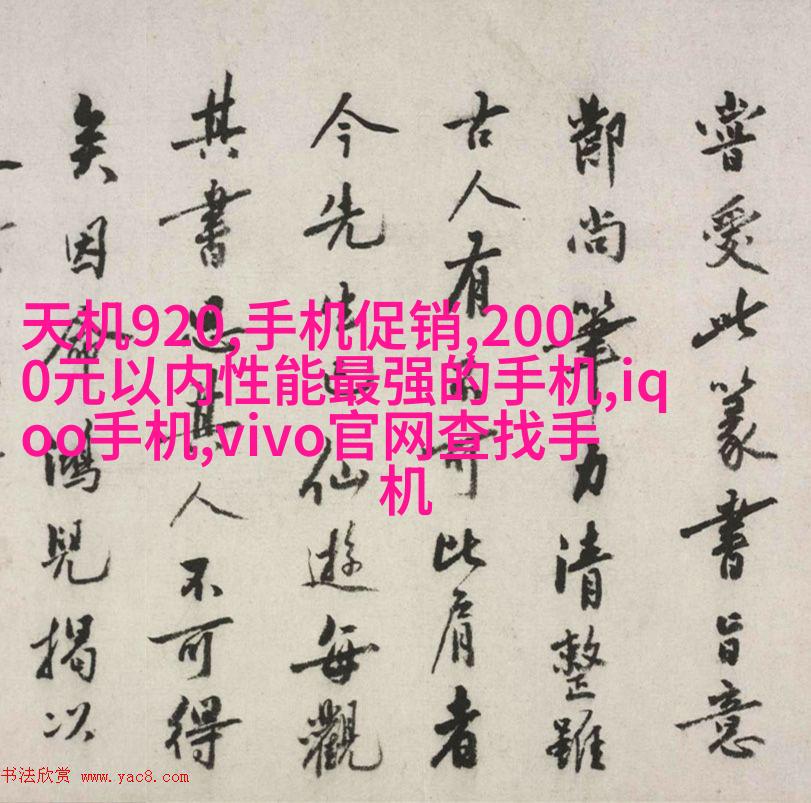 天机920,手机促销,200
0元以内性能最强的手机,iq
oo手机,vivo官网查找手
机
嘗愛此篆書旨意
節尚筆力清整雖
古人有可比肩者
今先生已仙遊每觀
其書思其人不可得
矣因命鴻兒揭以
书法欣赏 www.yac8.com